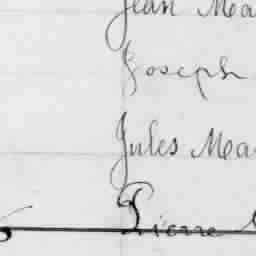 Jean Ma
Joseph
Jules Ma
Pierre